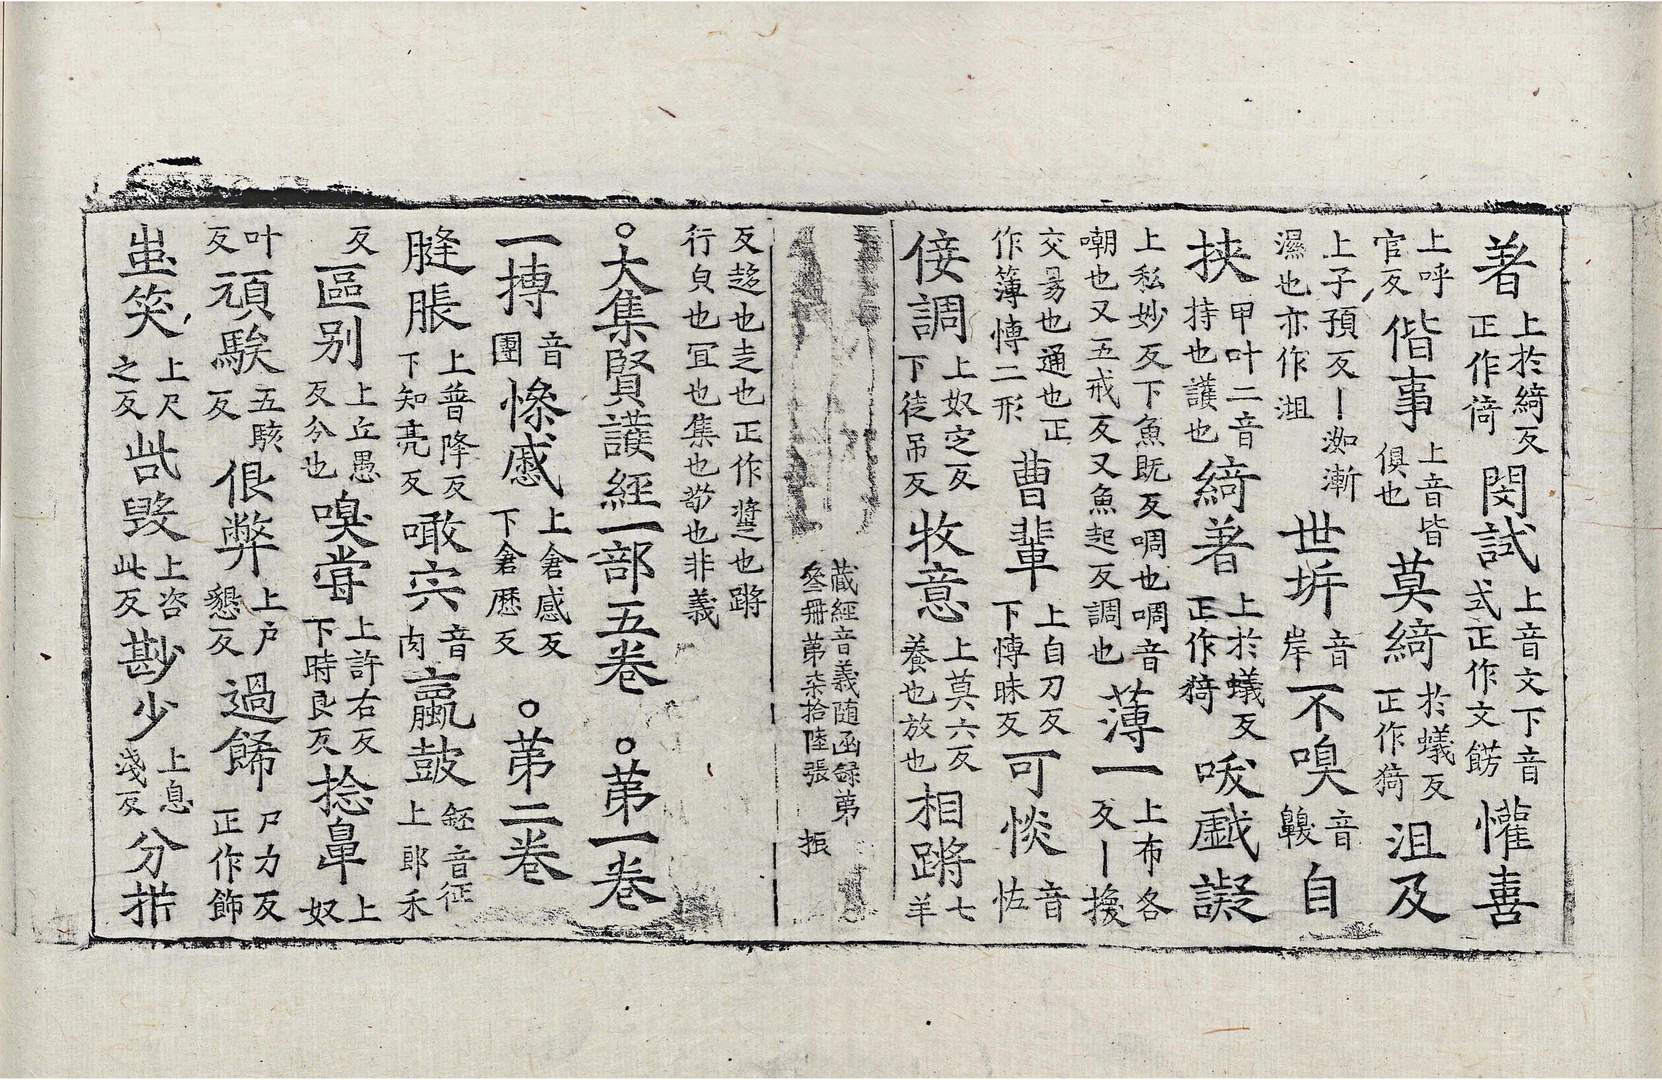 著上於綺反正作𭶚閔試上音文下音式正作文餝懽喜
上呼官反偕事上音皆俱也莫綺於蟻反正作猗沮及
上子預反丨洳漸濕也亦作沮世㘸音岸不嗅音齅自
挾甲叶二音持也護也綺著上於蟻反正作猗唆戱譺
上私妙反下魚既反啁也啁音嘲也又五戒反又魚起反調也薄一上布各反丨換
交易也通也正作簿慱二形曹輩上自刀反下慱昧反可惔音恠
倿調上奴定反下徒吊反牧意上莫六反養也放也相蹡七羊
反趍也走也正作蹡也蹡行皃也冝也集也茆也非義
藏經音義随函録第叄冊第柒拾陸張 振
○大集賢護經一部五卷 ○第一卷
一摶音團慘慼上倉感反下倉歷反 ○第二卷
膖脹上普降反下知亮反噉宍音肉蠃鼓上郎禾
反區别上丘愚反分也嗅嘗上許右反下時良反捻鼻上奴
叶反頑騃五駭反佷弊上戶懇反過餙尸力反正作飾
蚩笑上尺之反呰毀上咨此反尠少上息淺反分枡